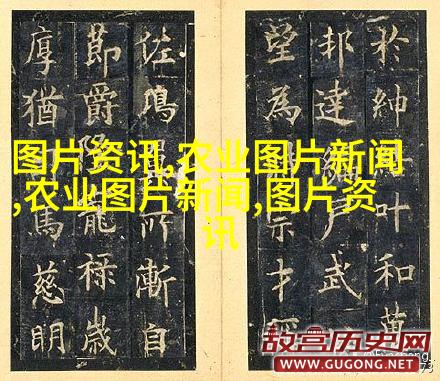 於紳叶和黄
邦達户武
望為示才
佐鳴所漸自
節爵隆龍祿歲
厚猶馬慈明
图片资讯,农业图片新闻
,农业图片新闻,图片资
讯
故宫历史网
WWW.GUGONG.NET